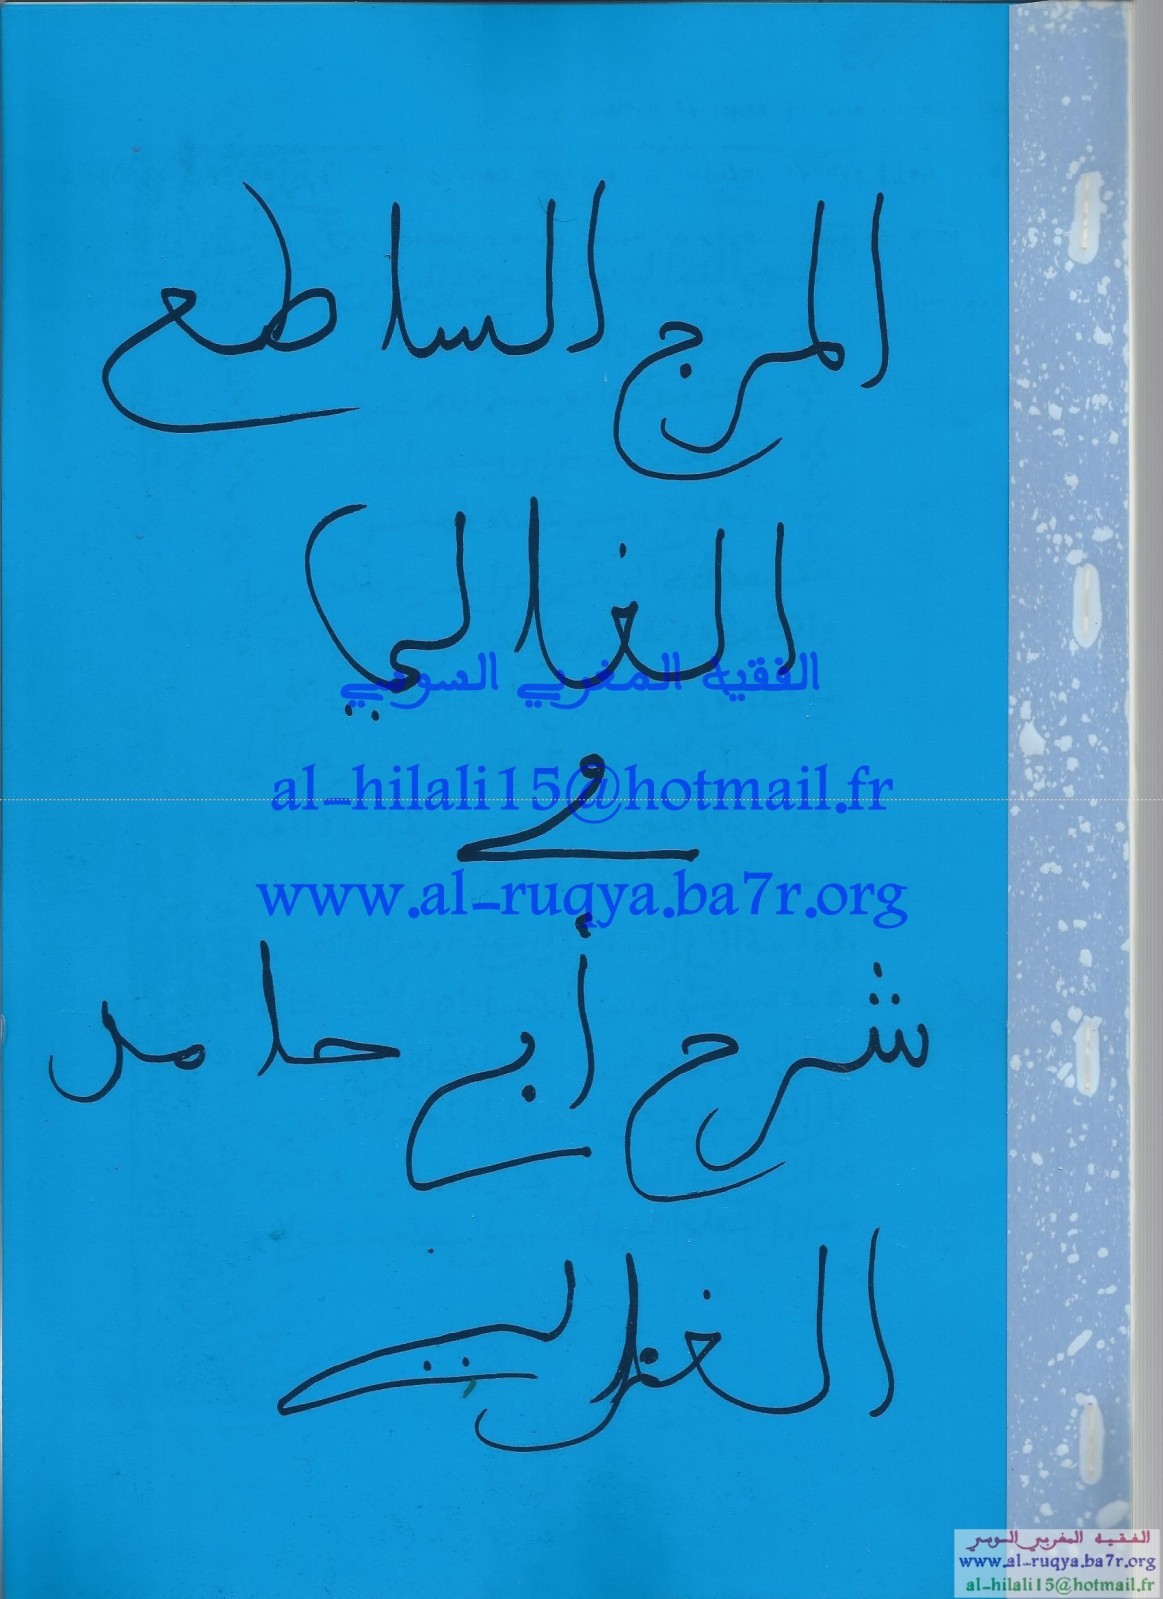 المرج الساطع
الغالي
الفقيه المغربي السوسي
al-hilali15@hotmail.fr
في
www.al-ruqya.ba7r.org
شرح أبي حامد
الغزالي
الفقيه المغربي السوسي
www.al-ruqya.ba7r.org
al-hilali15@hotmail.fr